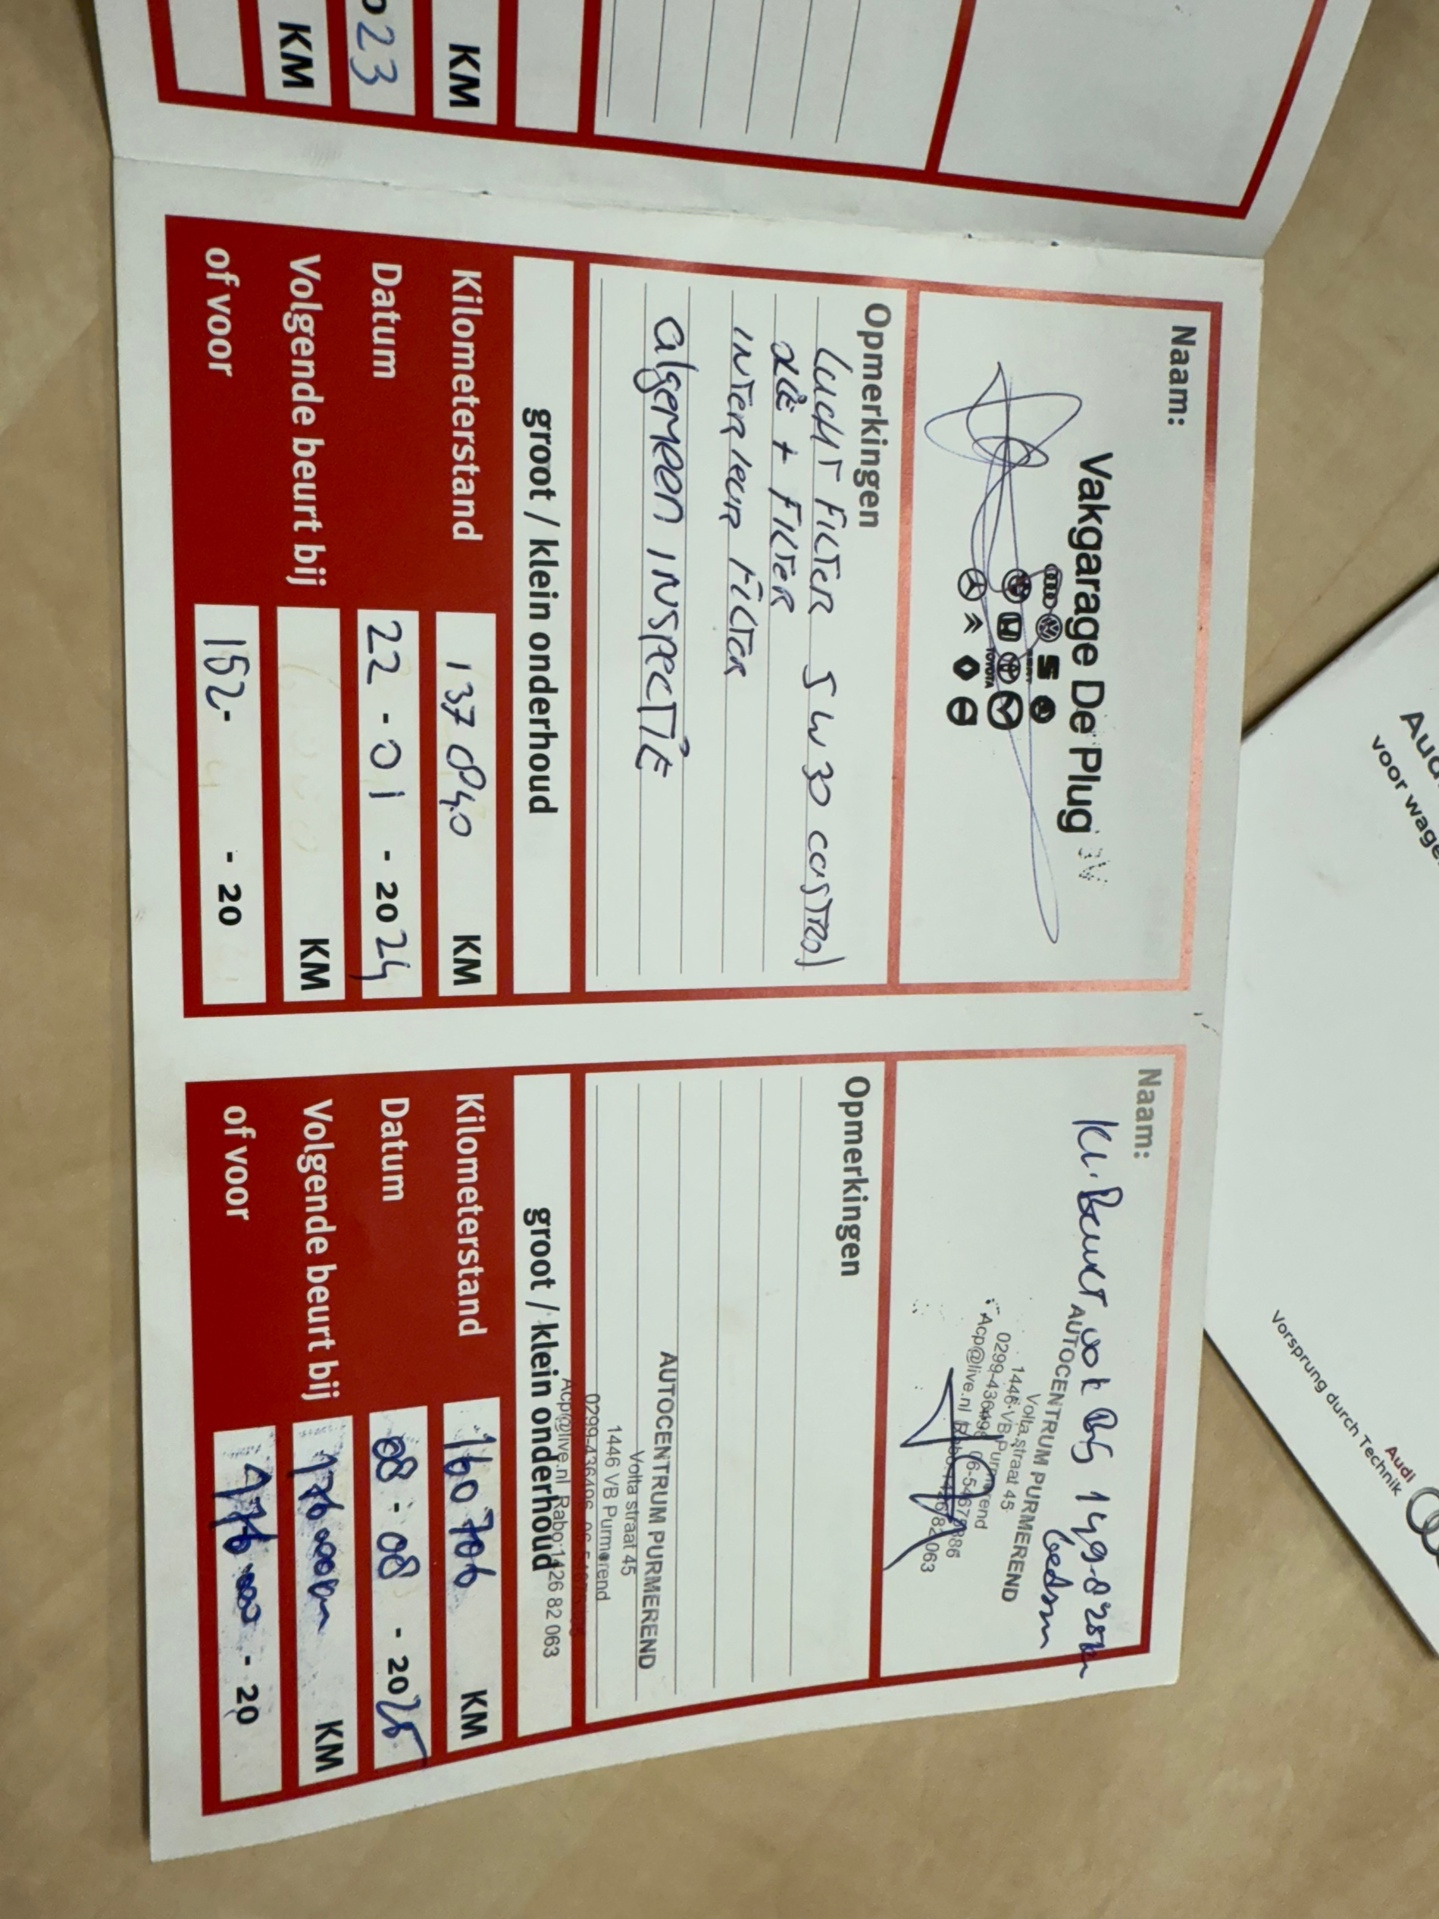 23
KM
KM
Naam:
Vakgarage De Plug
TOYOTA
Opmerkingen
LUCHT FILTER 5W30 castrol
+ FILTER
INTERIEUR FILTER
algemeen INSPECTIE
groot / klein onderhoud
Kilometerstand 137 840 KM
Datum 22 - 01 - 2024
Volgende beurt bij KM
of voor 152- - 20
Naam:
Kl. Beurt ook bij 149.
AUTOCENTRUM PURMEREND
Volta straat 45
1446 VB Purmerend
0299-436496
Acp@live.nl
Opmerkingen
AUTOCENTRUM PURMEREND
Volta straat 45
1446 VB Purmerend
0299-436496
Acp@live.nl Rabo:1426 82 063
groot / klein onderhoud
Kilometerstand 160 706 KM
Datum 08 - 08 - 2025
Volgende beurt bij KM
of voor - 20
voor wage
Audi
Vorsprung durch Technik